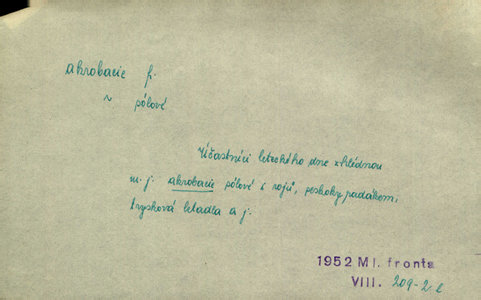 akrobacie f.
~ sólové
Účastníci leteckého dne zhlédnou
m. j. akrobacie sólové i rojů, seskoky padákem,
trysková letadla a j.
1952 Ml. fronta
VIII. 209-2.